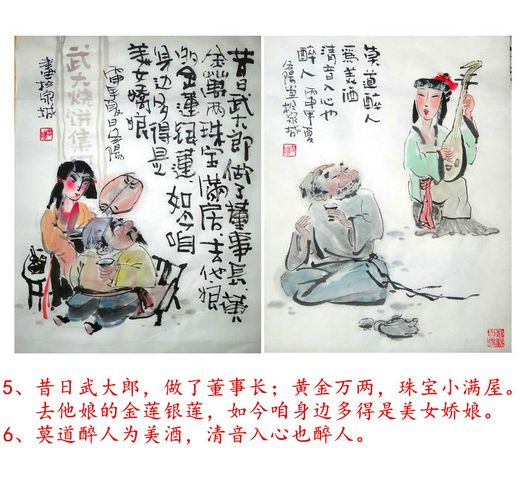 昔日武大郎做了董事長黄
金萬两珠宝滿屋去他娘
的金蓮银蓮如今咱
身边多得是
美女嬌娘
丙申夏日伍陽
畫於泉城
武大烧饼集
莫道醉人
爲美酒
清音入心也
醉人丙申年夏
伍陽畫於泉城
5、昔日武大郎，做了董事长；黄金万两，珠宝小满屋。
去他娘的金莲银莲，如今咱身边多得是美女娇娘。
6、莫道醉人为美酒，清音入心也醉人。